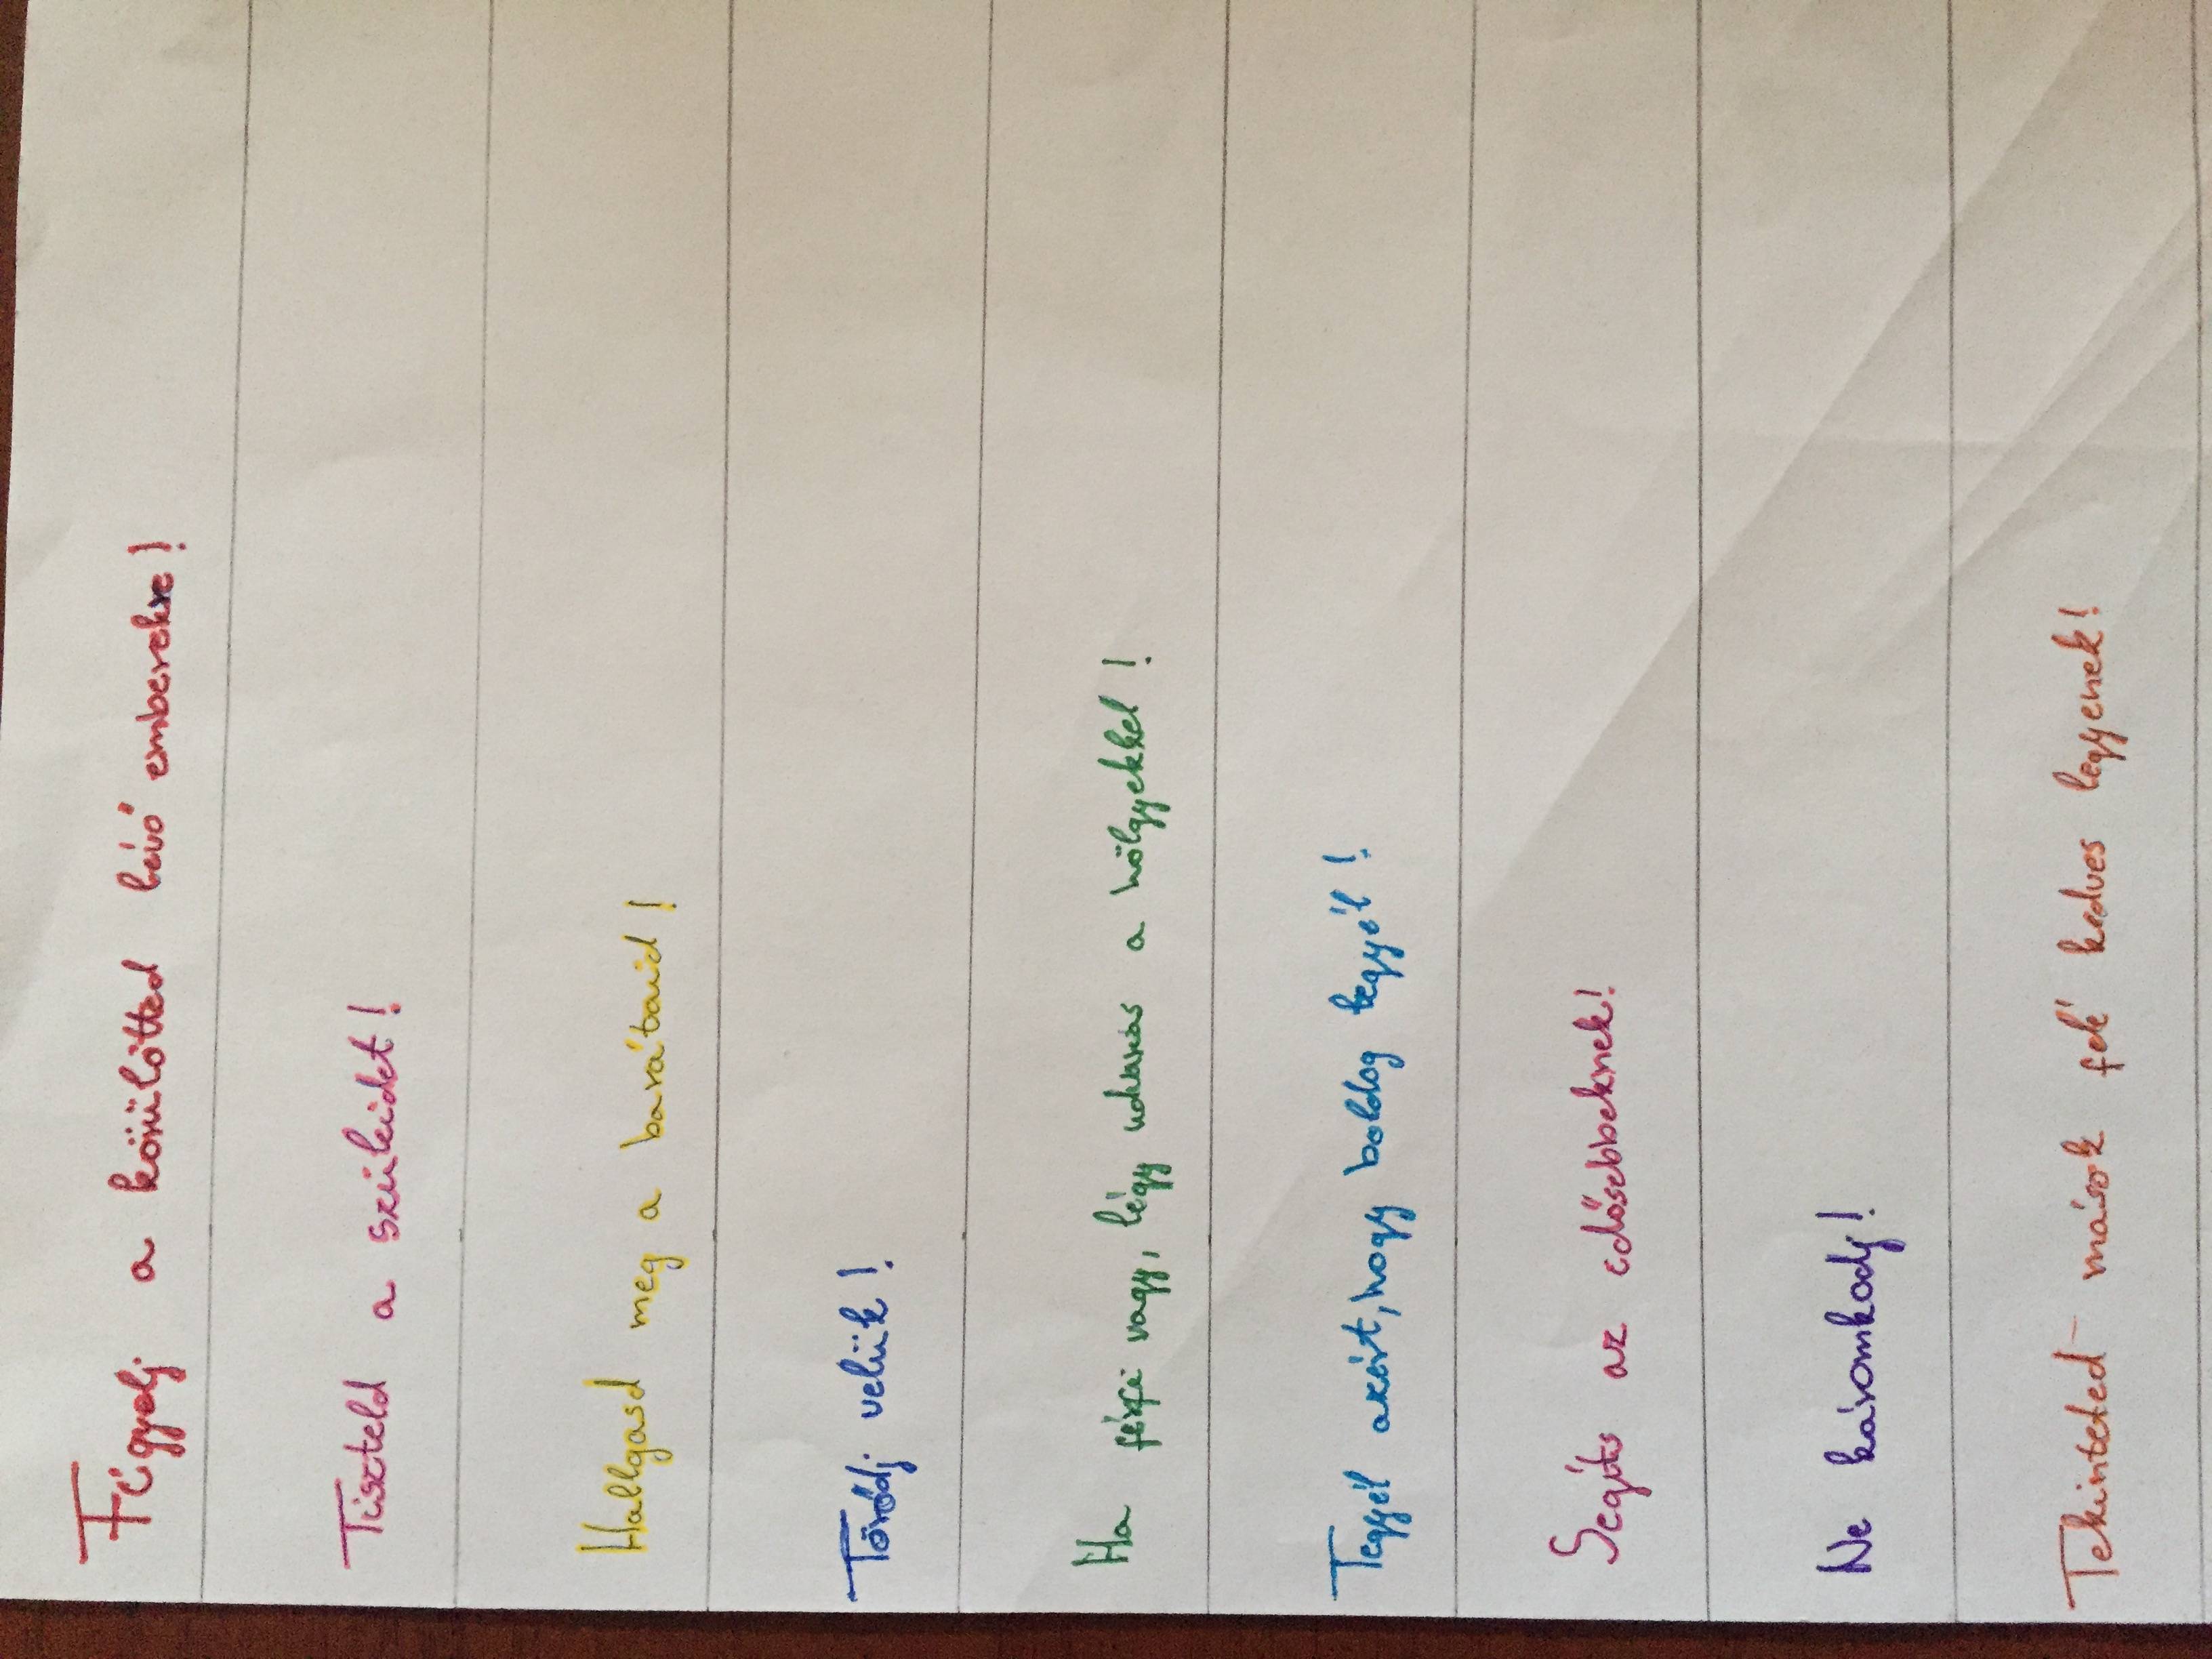 Figyelj a körülötted lévő emberekre!
Tiszteld a szüleidet!
Hallgasd meg a barátaid!
Törődj velük!
Ha férfi vagy, légy udvarias a hölgyekkel!
Tegyél azért, hogy boldog legyél!
Segíts az idősebbeknek!
Ne káromkodj!
Tekinteted mások felé kedves legyenek!